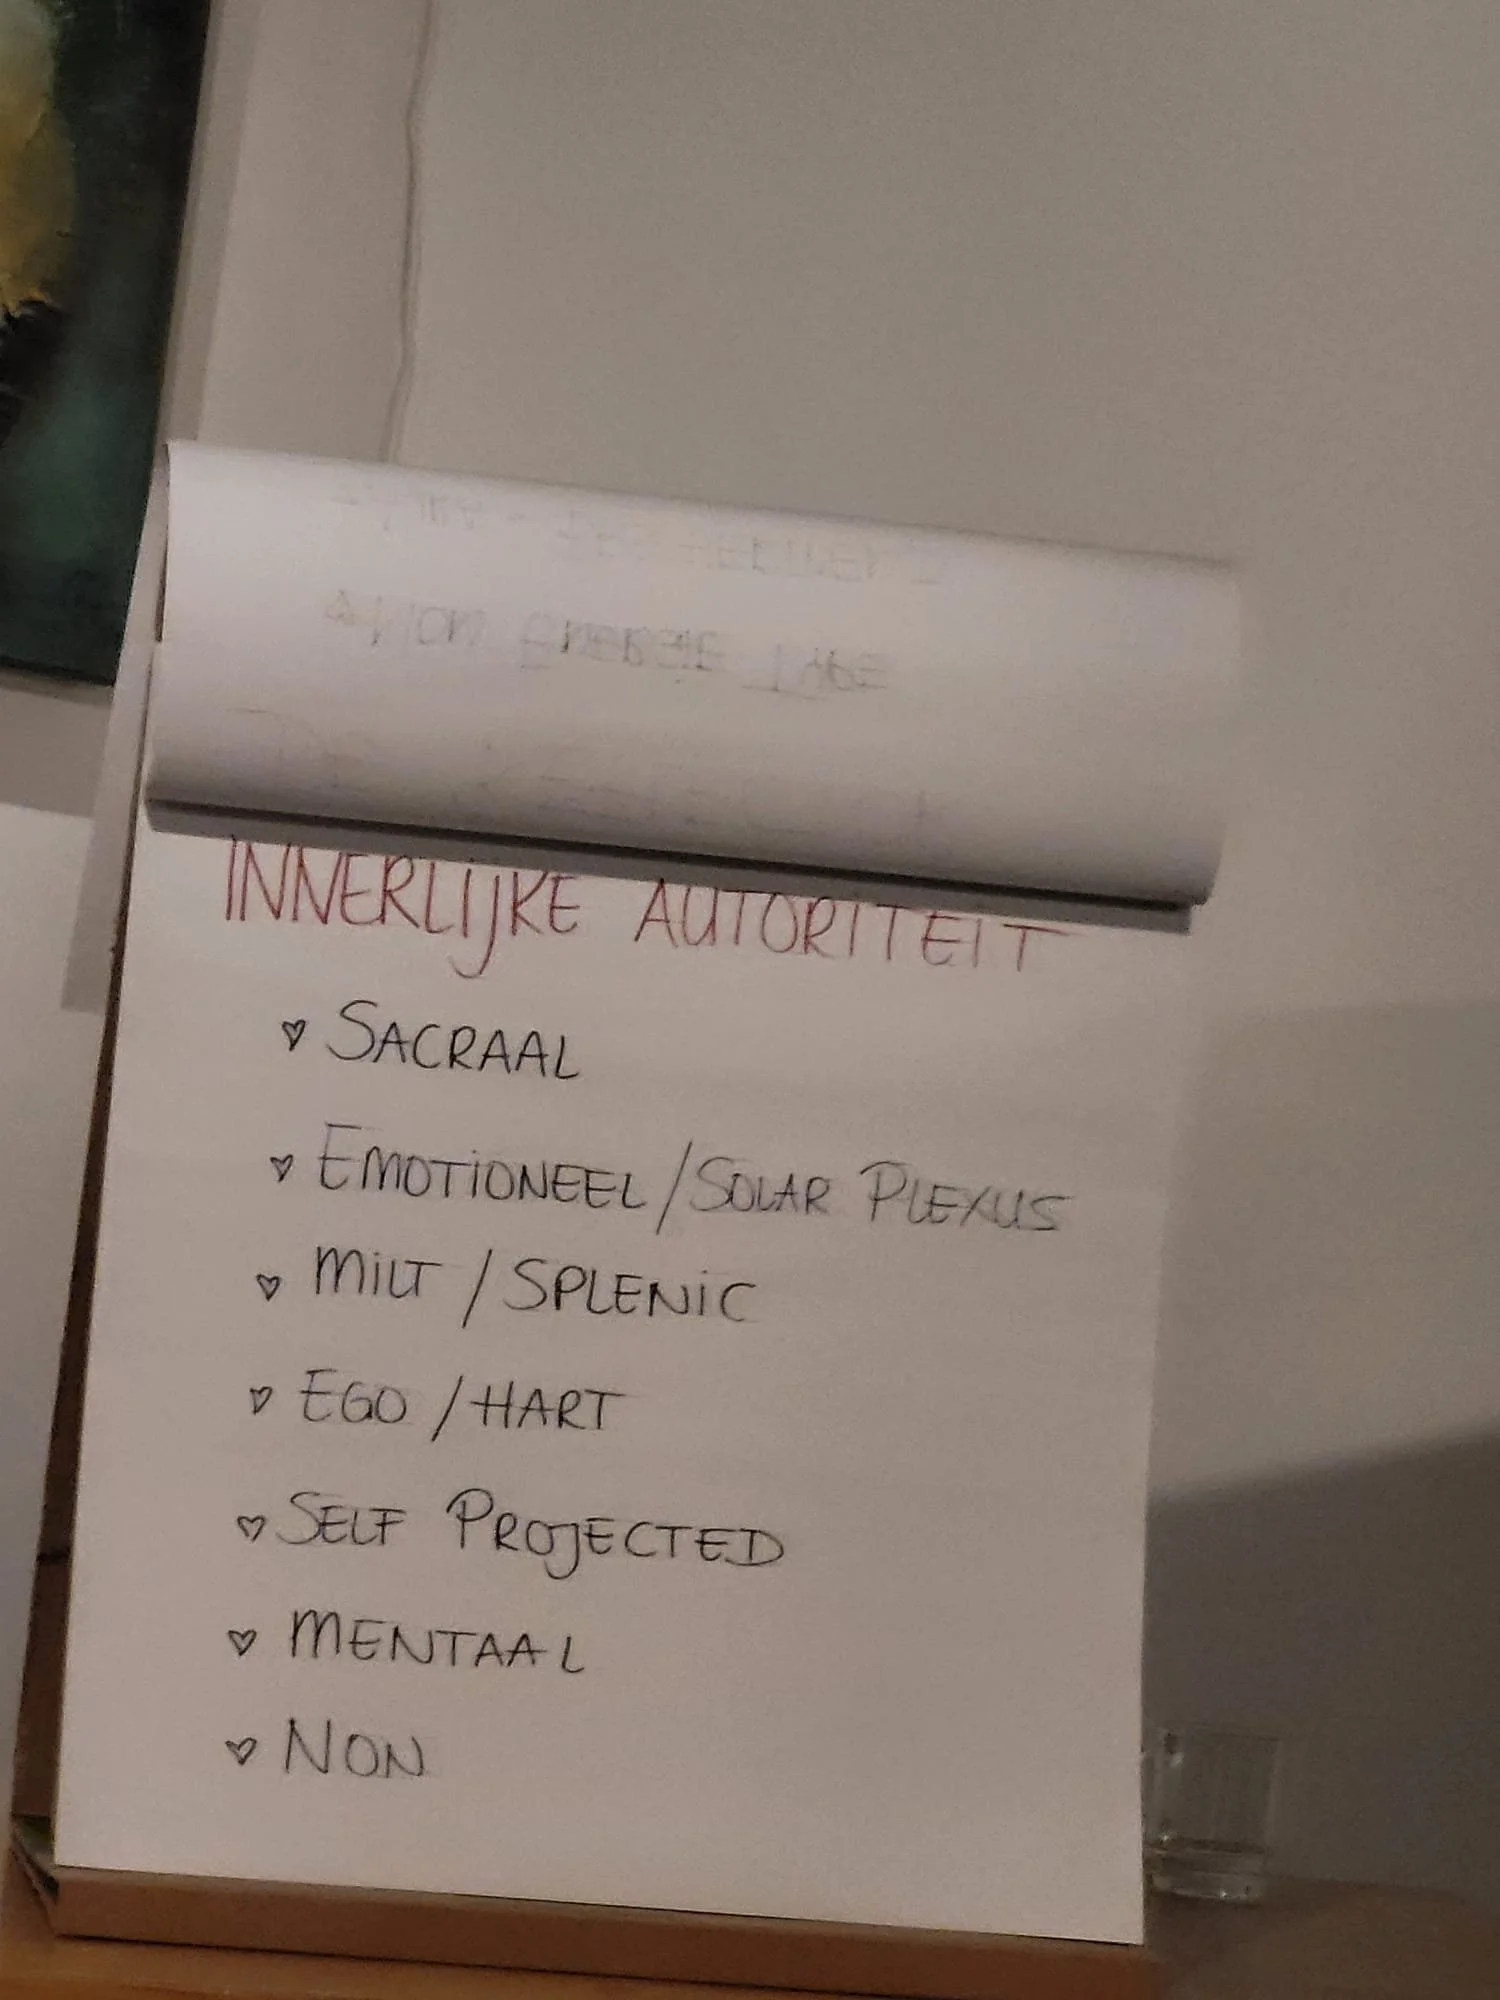 NON ENERGIE TYPE
INNERLIJKE AUTORITEIT
SACRAAL
EMOTIONEEL/SOLAR PLEXUS
MILT / SPLENIC
EGO / HART
SELF PROJECTED
MENTAAL
NON